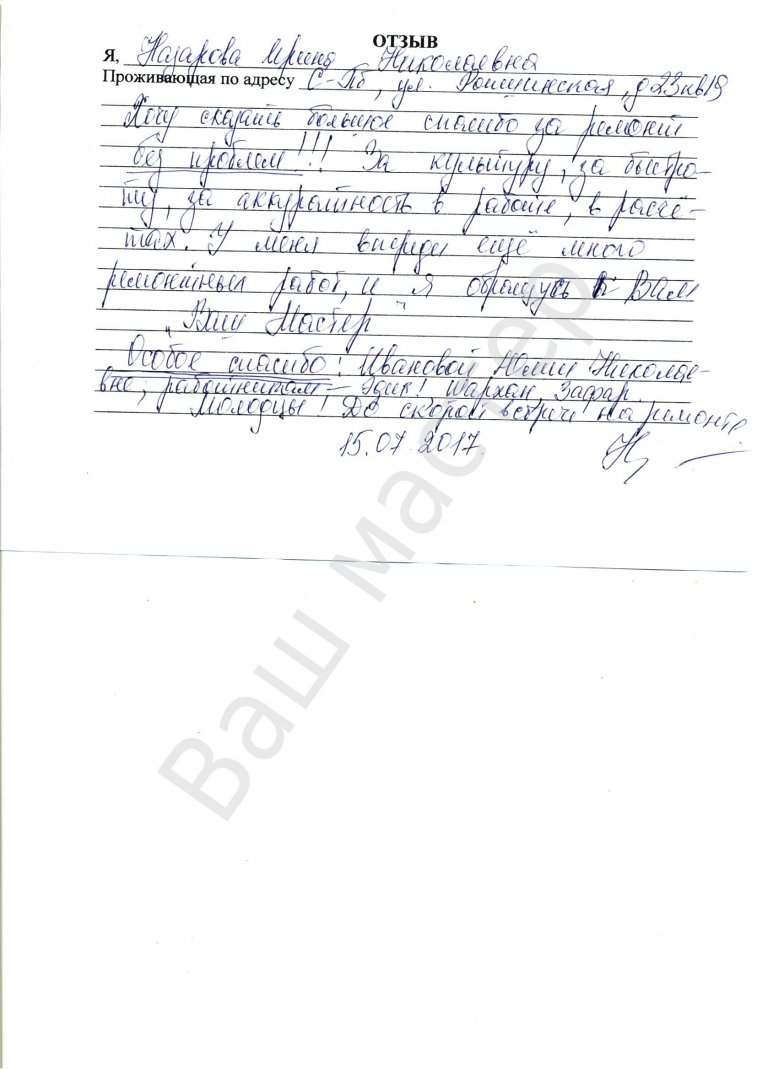 ОТЗЫВ
Я, Назарова Ирина Николаевна
Проживающая по адресу С-Пб, ул. Рощинская, д 23 кв 19
Хочу сказать большое спасибо за ремонт
без проблем!!! За культуру, за быстро-
ту, за аккуратность в работе, в расчё-
тах. У меня впереди ещё много
ремонтных работ, и я обращусь к Вам
„Ваш Мастер"
Особое спасибо: Ивановой Юлии Николае-
вне, работникам – Эдик! Шархан, Зафар.
Молодцы! До скорой встречи на ремонте.
15.07.2017.
Ваш мастер